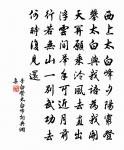 西上太白峰夕陽窮登
攀太白與我語為我開
天關願乘泠風去直出
浮雲間舉手可近月前
行若無山一別武功去
何時復見還
李白登太白峰